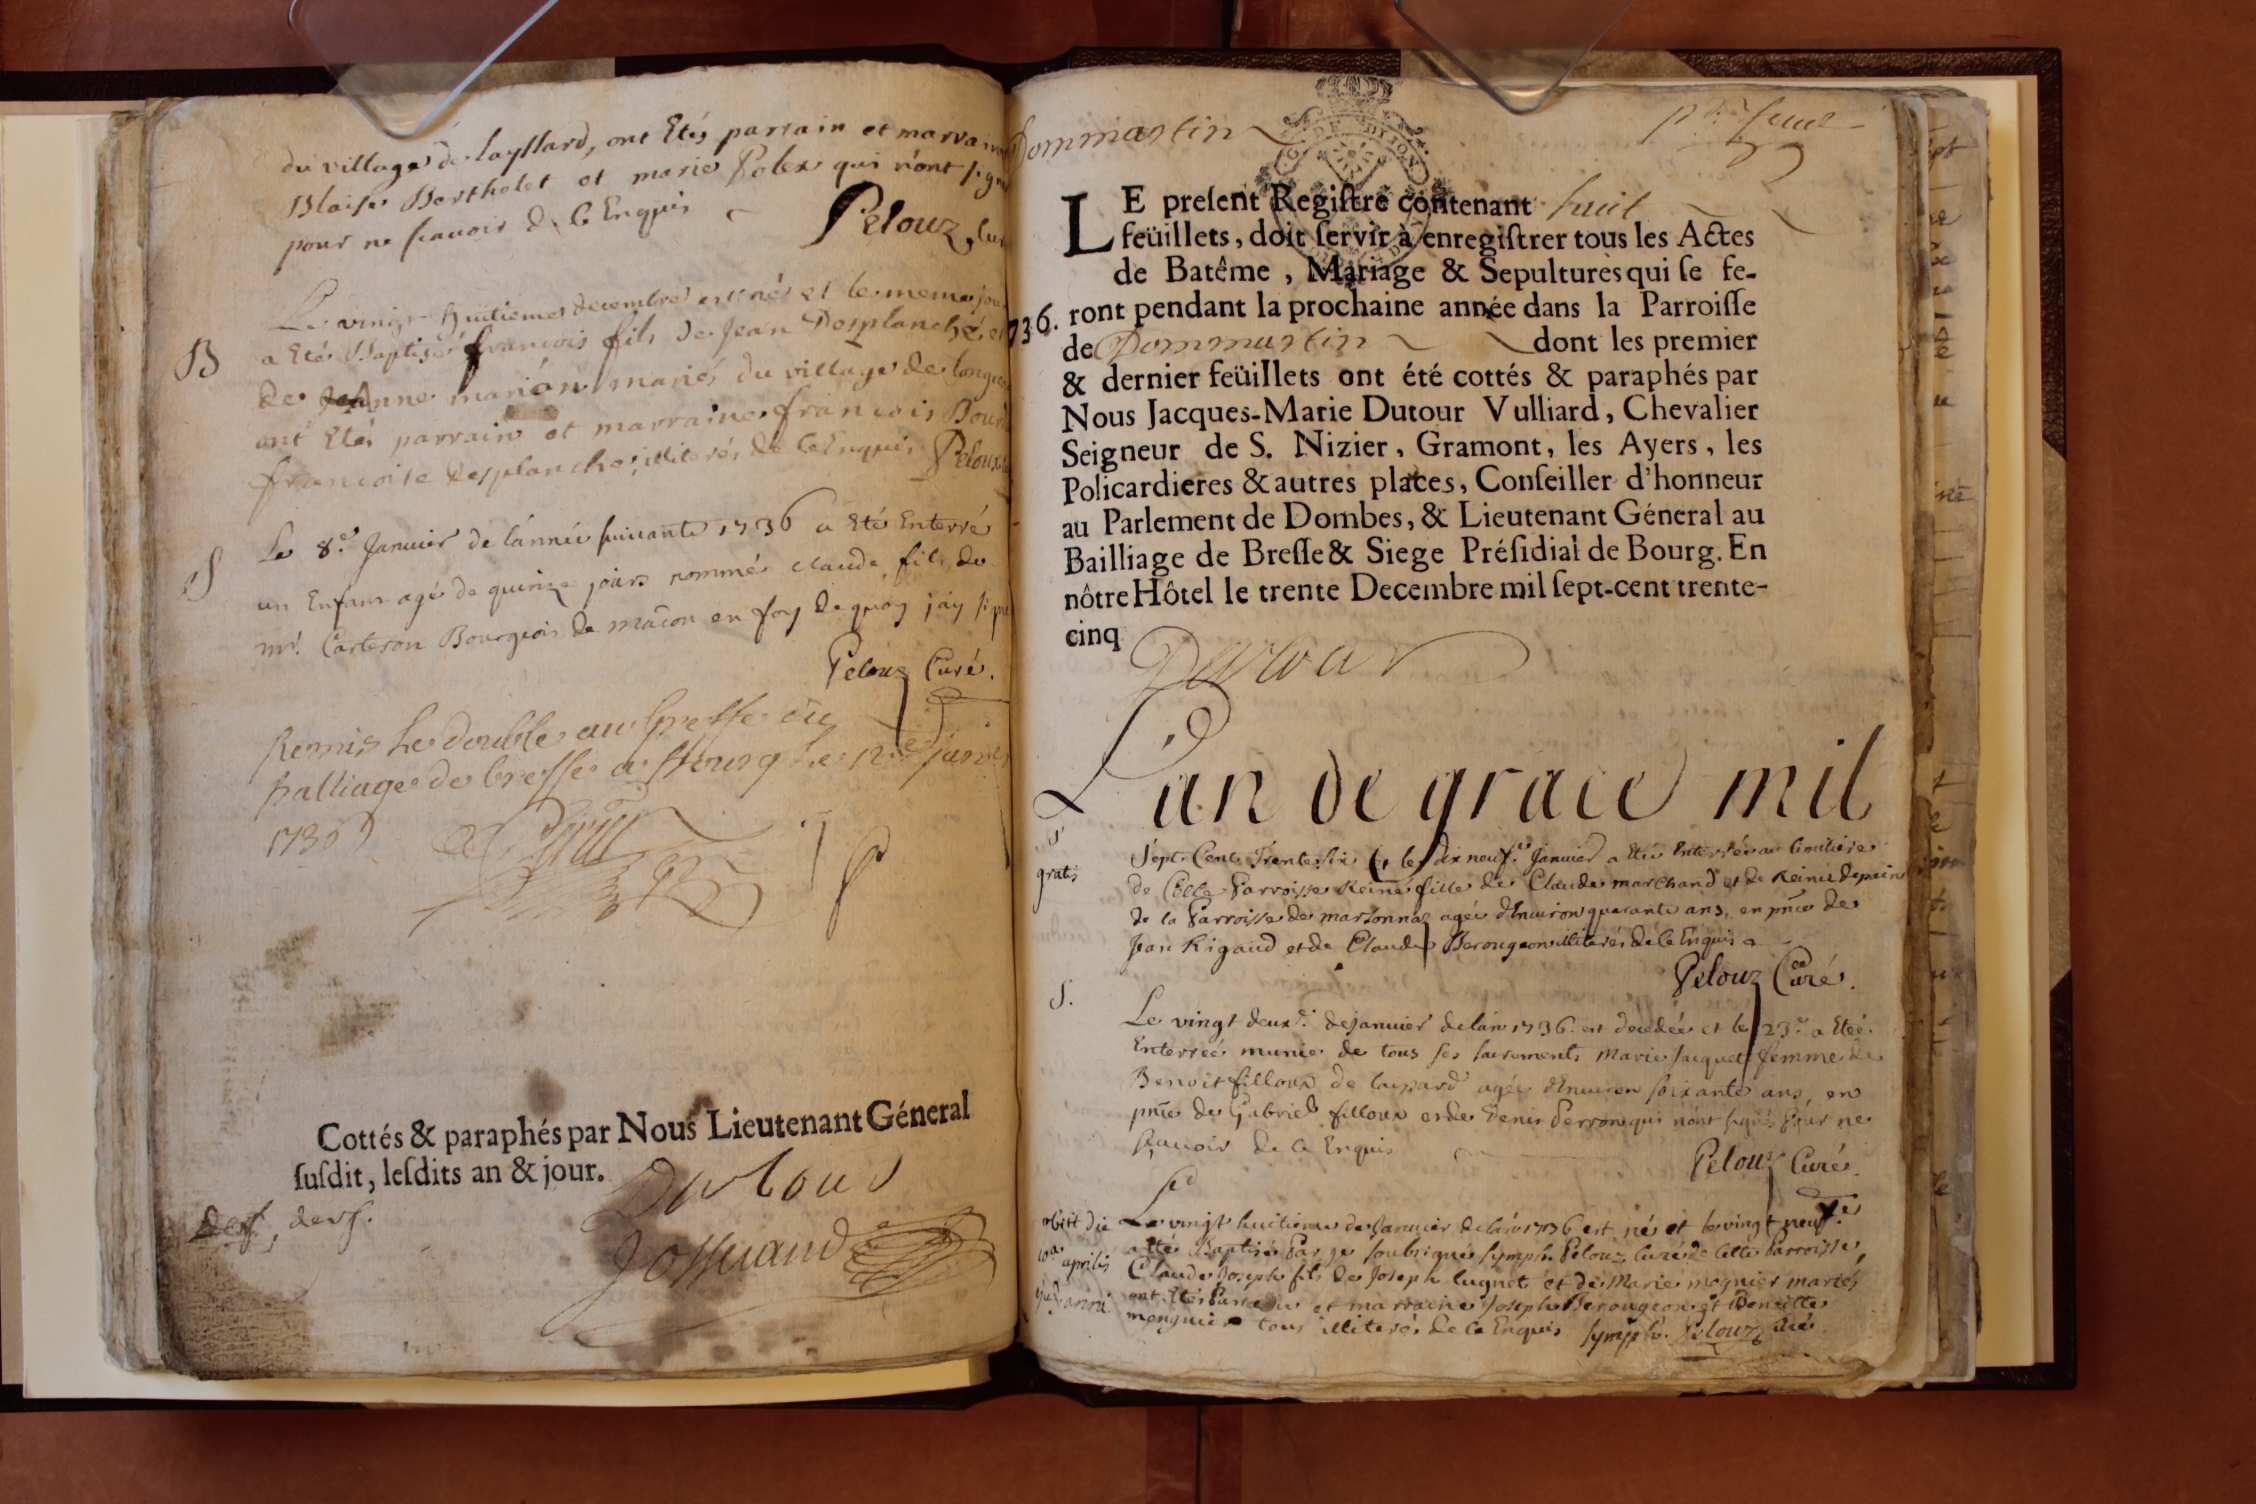 du village de layssard, ont Etés parrain et marrain
Blaise Berthelet et marie Polex qui n'ont signé
pour ne scavoir de ce Enquis
Pelouz, Cur
B
Le vingt huitieme decembre est né et le meme jour
a Eté Baptisé francois fils de Jean Desplanche, et
de Jeanne marion mariés du village de Longe
ont Etés parrain et marraine francois Bour
francoise Desplanche; illiterés de ce Enquis Pelouz
S
Le 8.e Janvier de lánnée suivante 1736 a Eté Enterré
un Enfant agé de quinze jours nommé claude, fils de
mr. Carteron Bourgeois de macon en foy de quoy j'ay signé
Pelouz Curé.
Remis Le double au Greffe du
balliage de bresse a bourg le 12e janvier
1736
Cottés & paraphés par Nous Lieutenant Géneral
suſdit, leſdits an & jour.
Dutour
ders.
Dommartin
LE preſent Regiſtre contenant huit
feüillets, doit ſervir à enregiſtrer tous les Actes
de Batême, Mariage & Sepultures qui ſe fe-
736. ront pendant la prochaine année dans la Parroiſſe
de Dommartin dont les premier
& dernier feüillets ont été cottés & paraphés par
Nous Jacques-Marie Dutour Vulliard, Chevalier
Seigneur de S. Nizier, Gramont, les Ayers, les
Policardieres & autres places, Conſeiller d'honneur
au Parlement de Dombes, & Lieutenant Géneral au
Bailliage de Breſſe & Siege Préſidial de Bourg. En
nôtre Hôtel le trente Decembre mil ſept-cent trente-
cinq
Dutour
L'an de grace mil
S
gratis
Sept Cent Trente six & le dix neuf.e Janvier a Eté Enterrée au Cimitiere
de Cette Parroisse Reine fille de Claude marchand et de Reine depain
de la Parroisse de marsonnaz agée d'Environ quarante ans, en pnce de
Jean Rigaud et de Claude Berougeon illiterés de ce Enquis
Pelouz Curé.
S.
Le vingt deux.e de janvier de lan 1736. est decedée et le 23.e a Eteé
Enterreé munie de tous ses sacrements Marie Jacquet femme de
Benoit filloux de layssard agée d'Environ soixante ans, en
pnce de Gabriel filloux et de Denis Perron qui n'ont signés Pour ne
scavoir de ce Enquis
Pelouz Curé.
obiit die
10a aprilis
Le vingt huitieme de Janvier de lan 1736 est né et le vingt neuf.e
a Eté Baptisé Par je soubsigné Symph. Pelouz Curé de Cette Parroisse,
Claude Joseph fils de Joseph lugnet et de Marie mognier mariés
ont Etés Parrain et marraine Joseph Berougeon et Benoitte
mongnier tous illiterés de ce Enquis Symph. Pelouz Curé